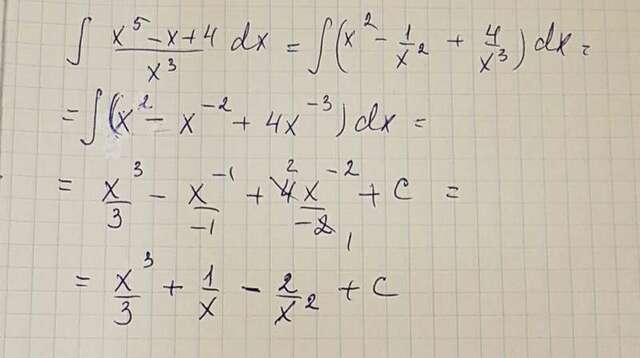 ∫ (x⁵ - x + 4)/x³ dx = ∫(x² - 1/x² + 4/x³) dx =
= ∫(x² - x⁻² + 4x⁻³) dx =
= x³/3 - x⁻¹/-1 + 4x⁻²/-2 + C =
= x³/3 + 1/x - 2/x² + C